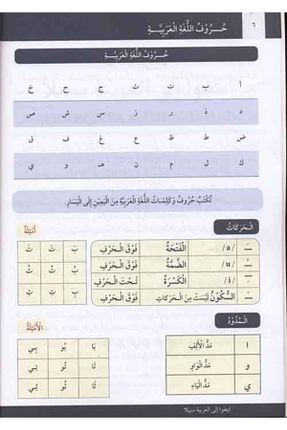 ٦
حُـرُوفُ اللُّغَةِ الْعَرَبِيَّـةِ
حُـرُوفُ اللُّغَةِ الْعَرَبِيَّـةِ
أ ب ت ث ج ح خ
د ذ ر ز س ش ص
ض ط ظ ع غ ف ق
ك ل م ن هـ و ي
تُكْتَبُ حُرُوفُ وَكَلِمَاتُ اللُّغَةِ الْعَرَبِيَّةِ مِنَ الْيَمِينِ إِلَى الْيَسَارِ.
الْـحَرَكَاتُ
/a/ الْفَتْحَةُ فَوْقَ الْـحَرْفِ
/u/ الضَّمَّةُ فَوْقَ الْـحَرْفِ
/i/ الْكَسْرَةُ تَـحْتَ الْـحَرْفِ
السُّكُونُ لَيْسَتْ مِنَ الْـحَرَكَاتِ فَوْقَ الْـحَرْفِ
أَمْثِلَةٌ
بَ تَ ثَ
بُ تُ ثُ
بِ تِ ثِ
الْـمُدُودُ
ا مَدُّ الْأَلِفِ
و مَدُّ الْوَاوِ
ي مَدُّ الْيَاءِ
الْأَمْثِلَةُ
بَا بُو بِي
تَا تُو تِي
ثَا ثُو ثِي
ابتغوا إلى العربية سبيلا